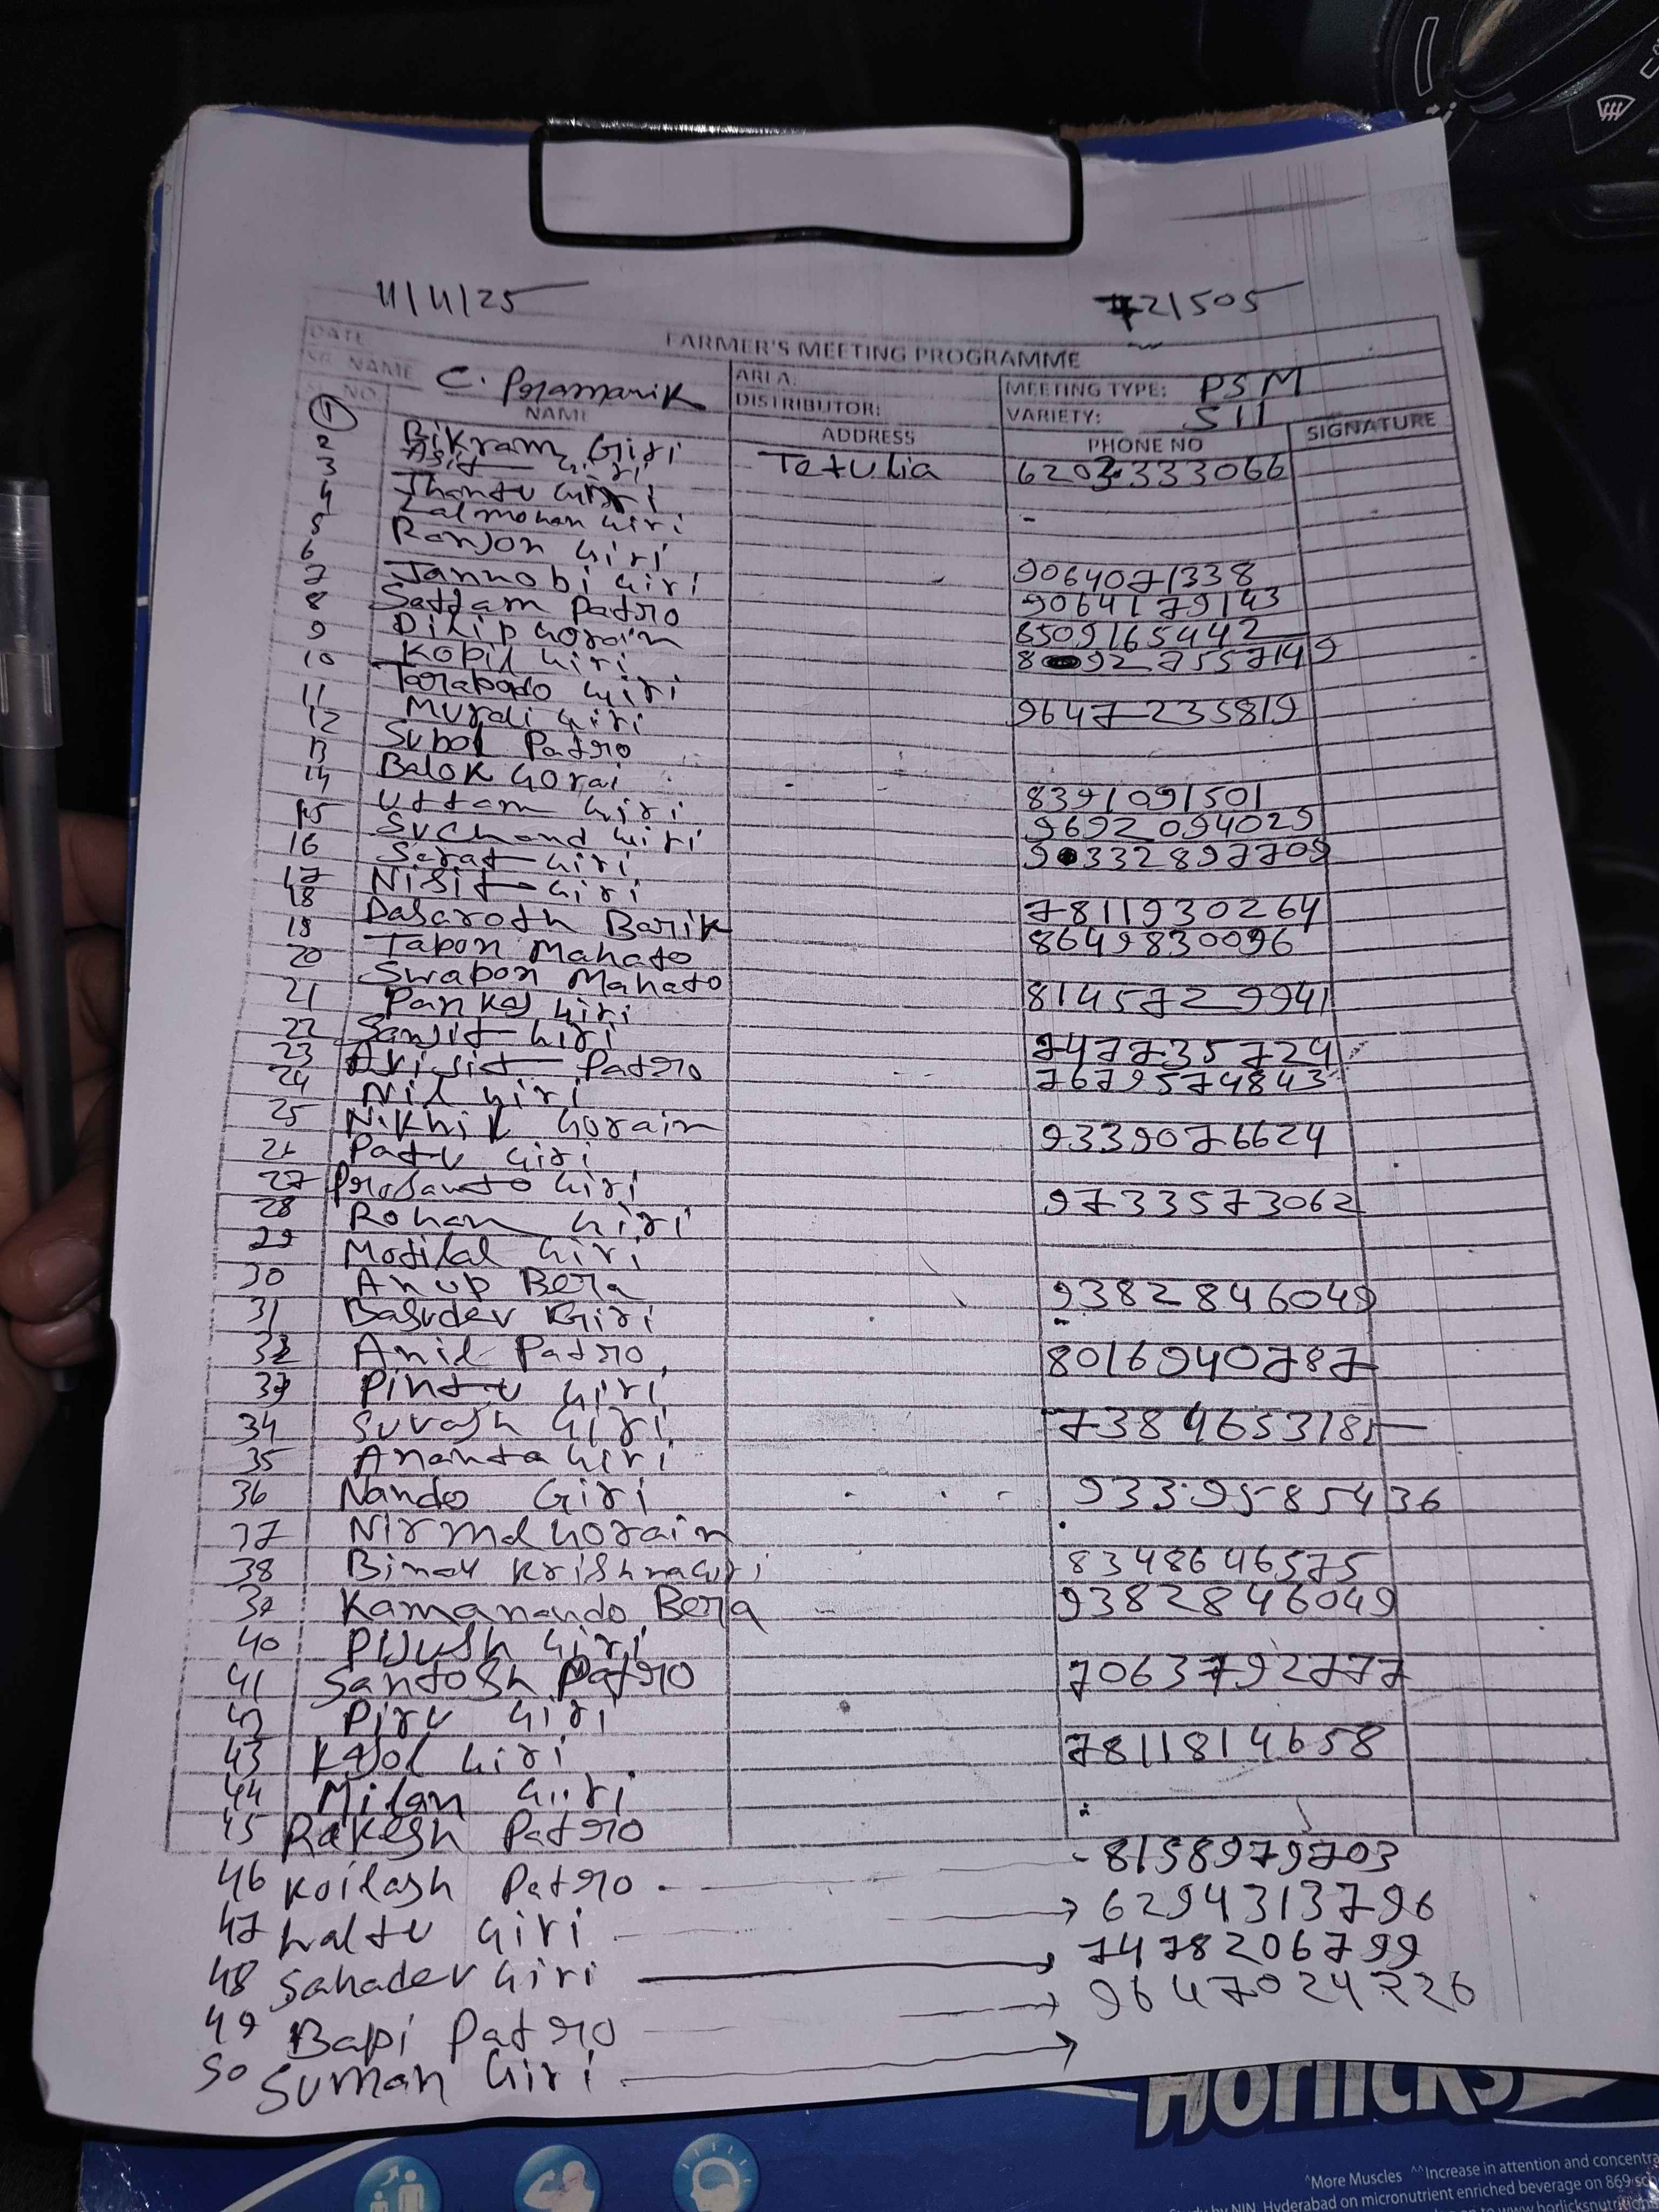 11/11/25 721505
FARMER'S MEETING PROGRAMME
DATE
SR. NAME C. Pramanik AREA: MEETING TYPE: PSM
DISTRIBUTOR: VARIETY: S11
SL. NO NAME ADDRESS PHONE NO SIGNATURE
1 Bikram Giri Tetulia 6203333066
2 Asit Giri
3 Jhantu Giri
4 Lalmohan Giri
5 Ranjon Giri 9064071338
6 Jannobi Giri 9064179143
7 Sattam Patro 8509165442
8 Dilip Gorain 8927557149
9 Kopil Giri
10 Tarapodo Giri 9647235819
11 Murali Giri
12 Subol Patro
13 Balok Gorai 8391091501
14 Uttam Giri 9692094029
15 Suchand Giri 9332897709
16 Sarat Giri
17 Nisit Giri 7811930264
18 Dasaroth Barik 8649830096
19 Tapon Mahato
20 Swapon Mahato 8145729941
21 Pankaj Giri
22 Sanjit Giri 7477735724
23 Arijit Patro 7679574843
24 Nil Giri
25 Nikhil Gorain 9339076624
26 Patu Giri
27 Prosanto Giri 9733573062
28 Rohan Giri
29 Motilal Giri
30 Anup Bera 9382846049
31 Basudev Giri
32 Anil Patro 8016940787
33 Pintu Giri
34 Suvosh Giri 738465318
35 Ananta Giri
36 Nando Giri 9339585436
37 Nirmal Gorain
38 Binoy Krishna Giri 8348646575
39 Kamanando Bera 9382846049
40 Pijush Giri
41 Santosh Patro 7063792777
42 Piru Giri
43 Kajol Giri 7811814658
44 Milan Giri
45 Rakesh Patro
46 Koilash Patro 8158979703
47 Laltu Giri 6294313796
48 Sahadev Giri 7478206799
49 Bapi Patro 9647024226
50 Suman Giri
Horlicks
^More Muscles ^^Increase in attention and concentra
NIN, Hyderabad on micronutrient enriched beverage on 869
www.horlicksnutrition